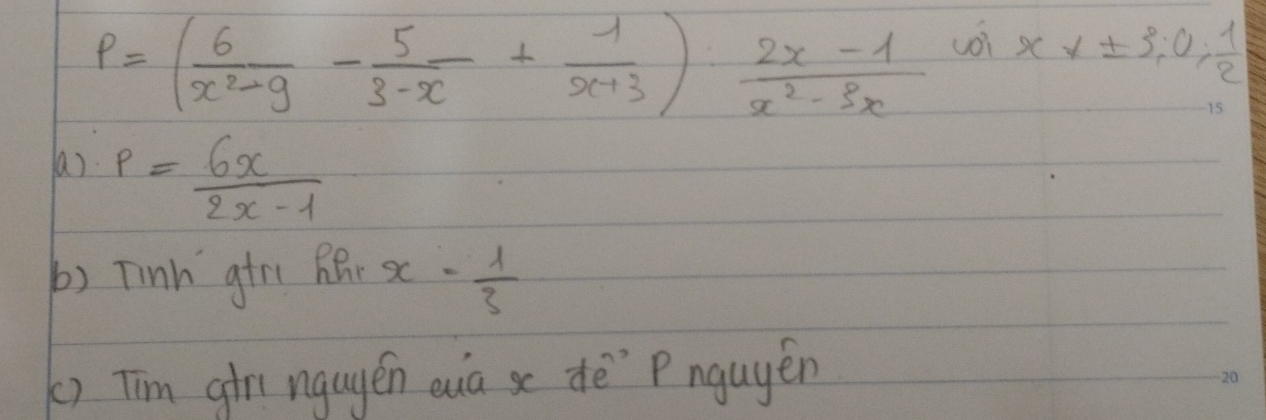 P = (6/(x²-9) - 5/(3-x) + 1/(x+3)) : (2x - 1)/(x² - 3x) với x ≠ ± 3; 0; 1/2
15
a) P = 6x/(2x - 1)
b) Tính gtrị khi x = 1/3
c) Tìm gtrị nguyên của x để P nguyên
20